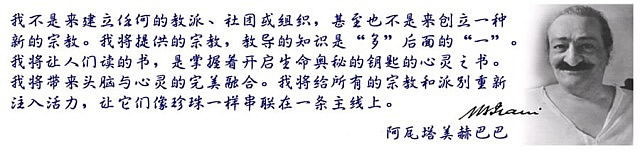 我不是来建立任何的教派、社团或组织，甚至也不是来创立一种
新的宗教。我将提供的宗教，教导的知识是“多”后面的“一”。
我将让人们读的书，是掌握着开启生命奥秘的钥匙的心灵之书。
我将带来头脑与心灵的完美融合。我将给所有的宗教和派别重新
注入活力，让它们像珍珠一样串联在一条主线上。
阿瓦塔美赫巴巴